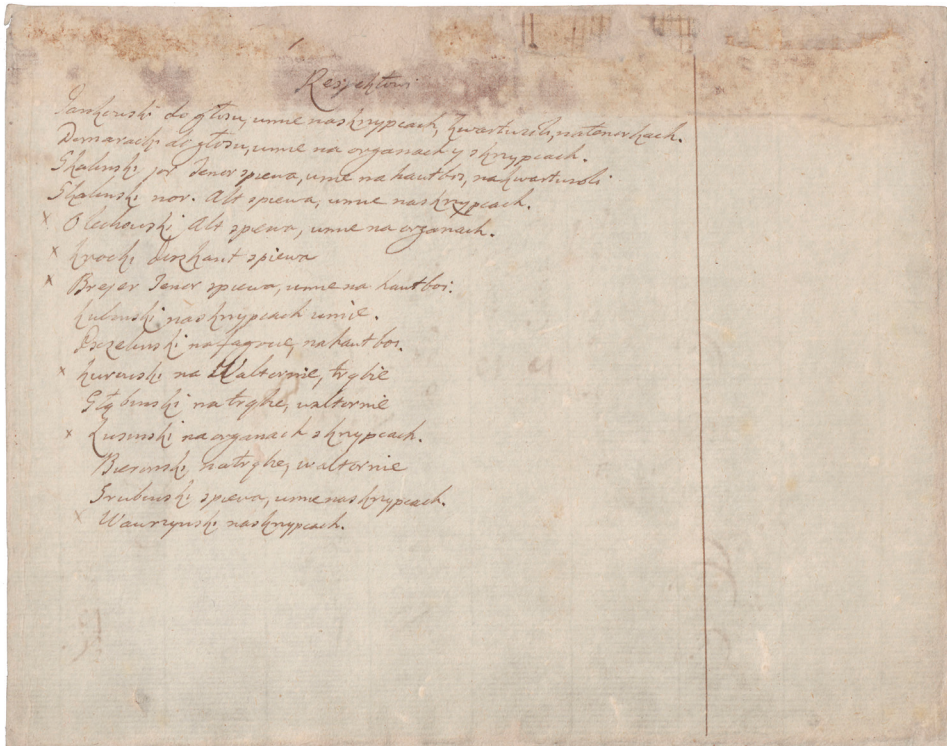 Respektowi
Jankowski do głosu, umie na skrzypcach, kwartwioli, na tenorkach.
Domaracki do głosu, umie na organach y skrzypcach.
Skalinski jor Tenor spiewa, umie na hautboi, na kwartwioli
Skalinski nor. Alt spiewa, umie na skrzypcach.
x Olechowski Alt spiewa, umie na organach.
x Krocki diszkant spiewa
x Brejer Tenor spiewa, umie na hautboi.
Kulinski na skrzypcach umie.
na fagocie, na hautboi.
x Kurowski na Waltornie, trąbie
Głębinski na trąbie, waltornie
x Lusinski na organach skrzypcach.
na trąbie, waltornie
Grubinski spiewa, umie na skrzypcach.
x Wawrzynski na skrzypcach.